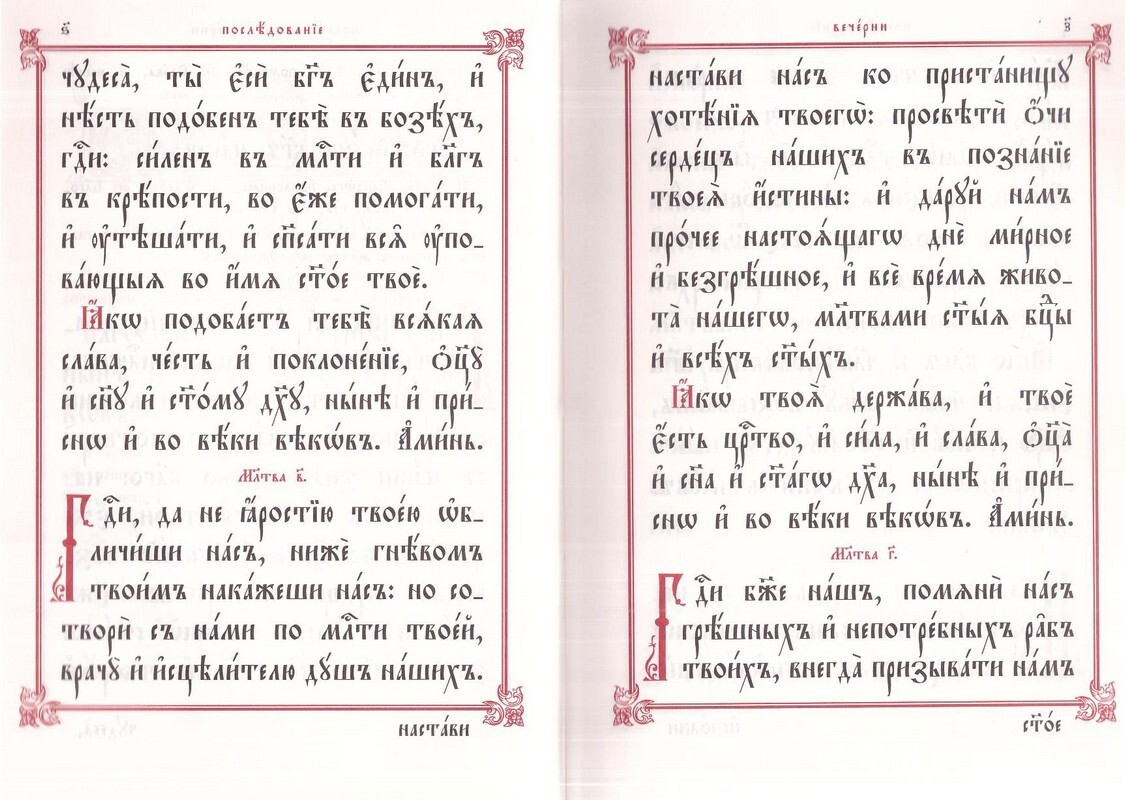 ѕ҃
послѣ́дованїе
чꙋдеса̀, ты̀ є҆сѝ бг҃ъ є҆ди́нъ, и҆
нѣ́сть подо́бенъ тебѣ̀ въ бозѣ́хъ,
гдⷭ҇и: си́ленъ въ млⷭ҇ти и҆ бл҃гъ
въ крѣ́пости, во є҆́же помога́ти,
и҆ ᲂу҆тѣша́ти, и҆ сп҃са́ти всѧ̑ ᲂу҆по_
ва́ющыѧ во и҆́мѧ ст҃о́е твоѐ.
Ꙗ҆́кѡ подоба́етъ тебѣ̀ всѧ́каѧ
сла́ва, че́сть и҆ поклоне́нїе, Ѻ҆ц҃ꙋ̀
и҆ сн҃ꙋ и҆ ст҃о́мꙋ дх҃ꙋ, ны́нѣ и҆ при́_
снѡ и҆ во вѣ́ки вѣкѡ́въ. А҆ми́нь.
Мл҃тва в҃.
Гдⷭ҇и, да не ꙗ҆́ростїю твоє́ю ѡ҆б_
личи́ши на́съ, нижѐ гнѣ́вомъ
твои́мъ нака́жеши на́съ: но со_
творѝ съ на́ми по млⷭ҇ти твое́й,
врачꙋ̀ и҆ и҆сцѣли́телю дꙋ́шъ на́шихъ.
наста́ви
вече́рни
з҃
наста́ви на́съ ко приста́нищꙋ
хотѣ́нїѧ твоегѡ̀: просвѣтѝ Ѻ҆́чи
серде́цъ на́шихъ въ позна́нїе
твоеѧ̀ и҆́стины: и҆ да́рꙋй на́мъ
про́чее настоѧ́щагѡ днѐ ми́рное
и҆ безгрѣ́шное, и҆ всѐ вре́мѧ живо_
та̀ на́шегѡ, мл҃твами ст҃ы́ѧ бц҃ды
и҆ всѣ́хъ ст҃ы́хъ.
Ꙗ҆́кѡ твоѧ̀ держа́ва, и҆ твоѐ
є҆́сть црⷭ҇тво, и҆ си́ла, и҆ сла́ва, Ѻ҆ц҃а̀
и҆ сн҃а и҆ ст҃а́гѡ дх҃а, ны́нѣ и҆ при́_
снѡ и҆ во вѣ́ки вѣкѡ́въ. А҆ми́нь.
Мл҃тва г҃.
Гдⷭ҇и бж҃е на́шъ, помѧнѝ на́съ
грѣ́шныхъ и҆ непотре́бныхъ ра̑бъ
твои́хъ, внегда̀ призыва́ти на́мъ
ст҃о́е